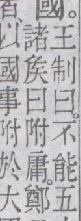 國。王制曰。不能五
諸矦曰附庸。鄭
者以國事附於大